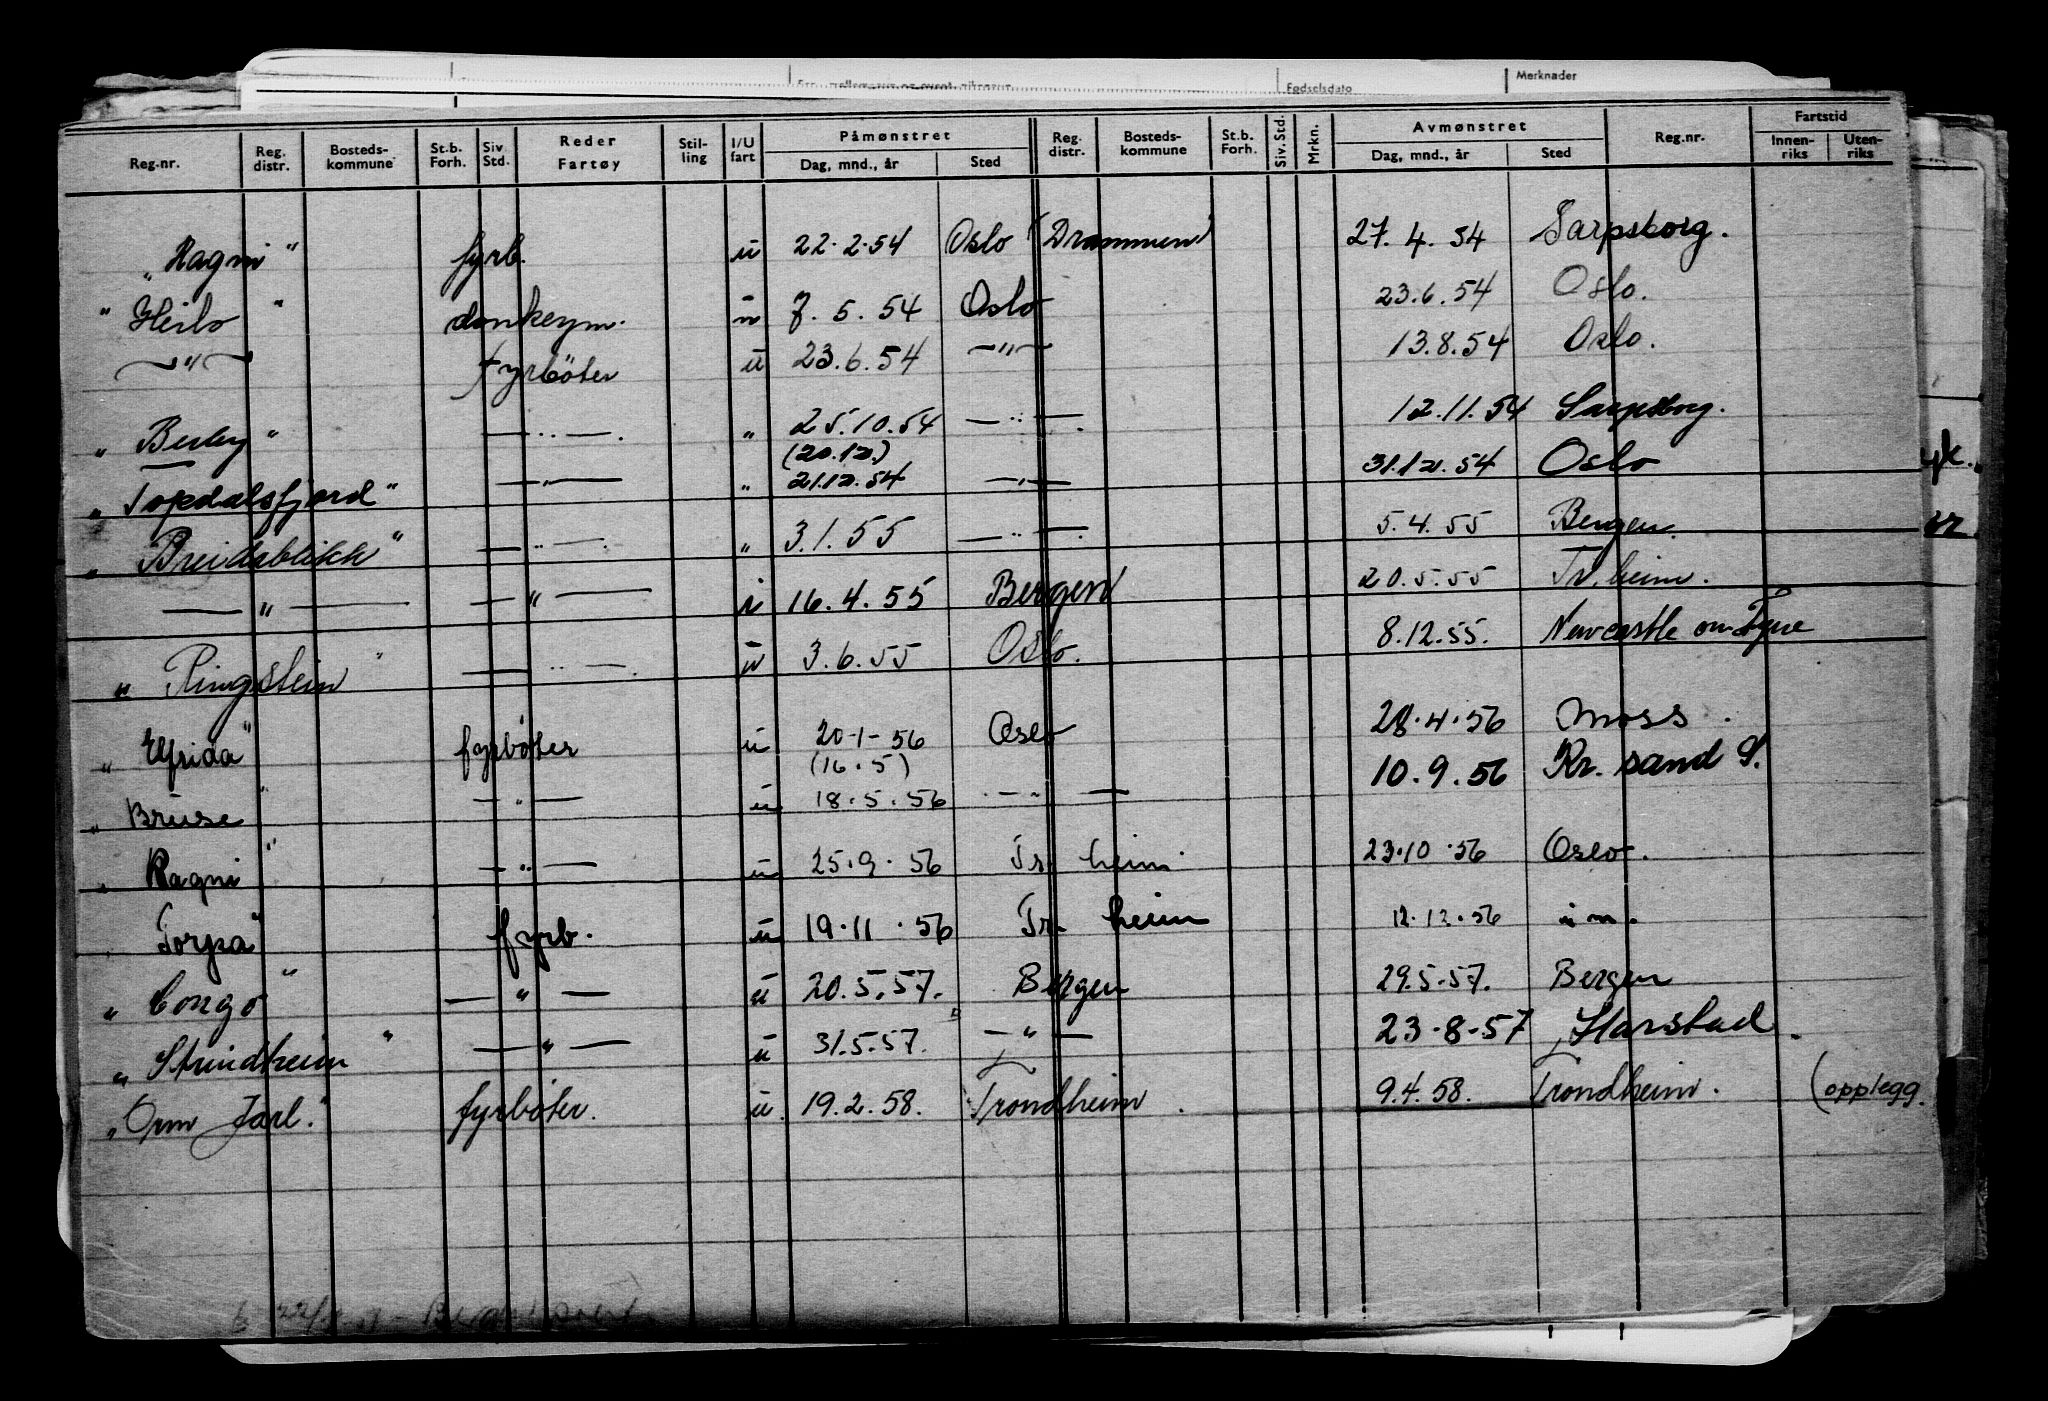 Merknader
Fødselsdato
Reg.nr. Reg. distr. Bosteds-kommune St.b. Forh. Siv Std. Reder Fartøy Stil-ling I/U fart Påmønstret Dag, mnd., år Sted Reg. distr. Bosteds-kommune St.b. Forh. Siv. Std. Mrkn. Avmønstret Dag, mnd., år Sted Reg.nr. Fartstid Innen-riks Uten-riks
"Ragni" fyrb. u 22.2.54 Oslo (Drammen) 27.4.54 Sarpsborg.
"Heilo" donkeym. u 7.5.54 Oslo 23.6.54 Oslo.
—"— fyrbøter u 23.6.54 —"— 13.8.54 Oslo.
"Besby" —"—. " 25.10.54 —"—. 12.11.54 Sarpsborg.
(20.12.)
"Topdalsfjord" —"— " 21.12.54 —"— 31.12.54 Oslo
"Breidablikk" —"—. " 3.1.55 —"—. 5.4.55 Bergen.
—"— —"— i 16.4.55 Bergen 20.5.55 Tr.heim.
"Ringstein" —"—. u 3.6.55 Oslo. 8.12.55. Newcastle on Tyne
"Elfrida" fyrbøter u 20-1-56 Oslo 28.4.56 Moss.
(16.5)
"Bruse" —"— u 18.5.56 —"— 10.9.56 Kr.sand S.
"Ragni" —"— u 25.9.56 Tr heim 23.10.56 Oslo.
"Torpa" fyrb. u 19.11.56 Tr heim 12.12.56 u m.
"Congo" —"— u 20.5.57. Bergen 29.5.57. Bergen
"Strindheim" —"— u 31.5.57. —"— 23-8-57 Harstad.
"Orm Jarl." fyrbøter. u. 19.2.58. Trondheim. 9.4.58. Trondheim. (opplegg.